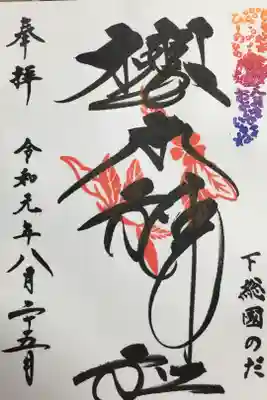 下総國のだ
櫻木神社
奉拝
令和元年八月二十五日